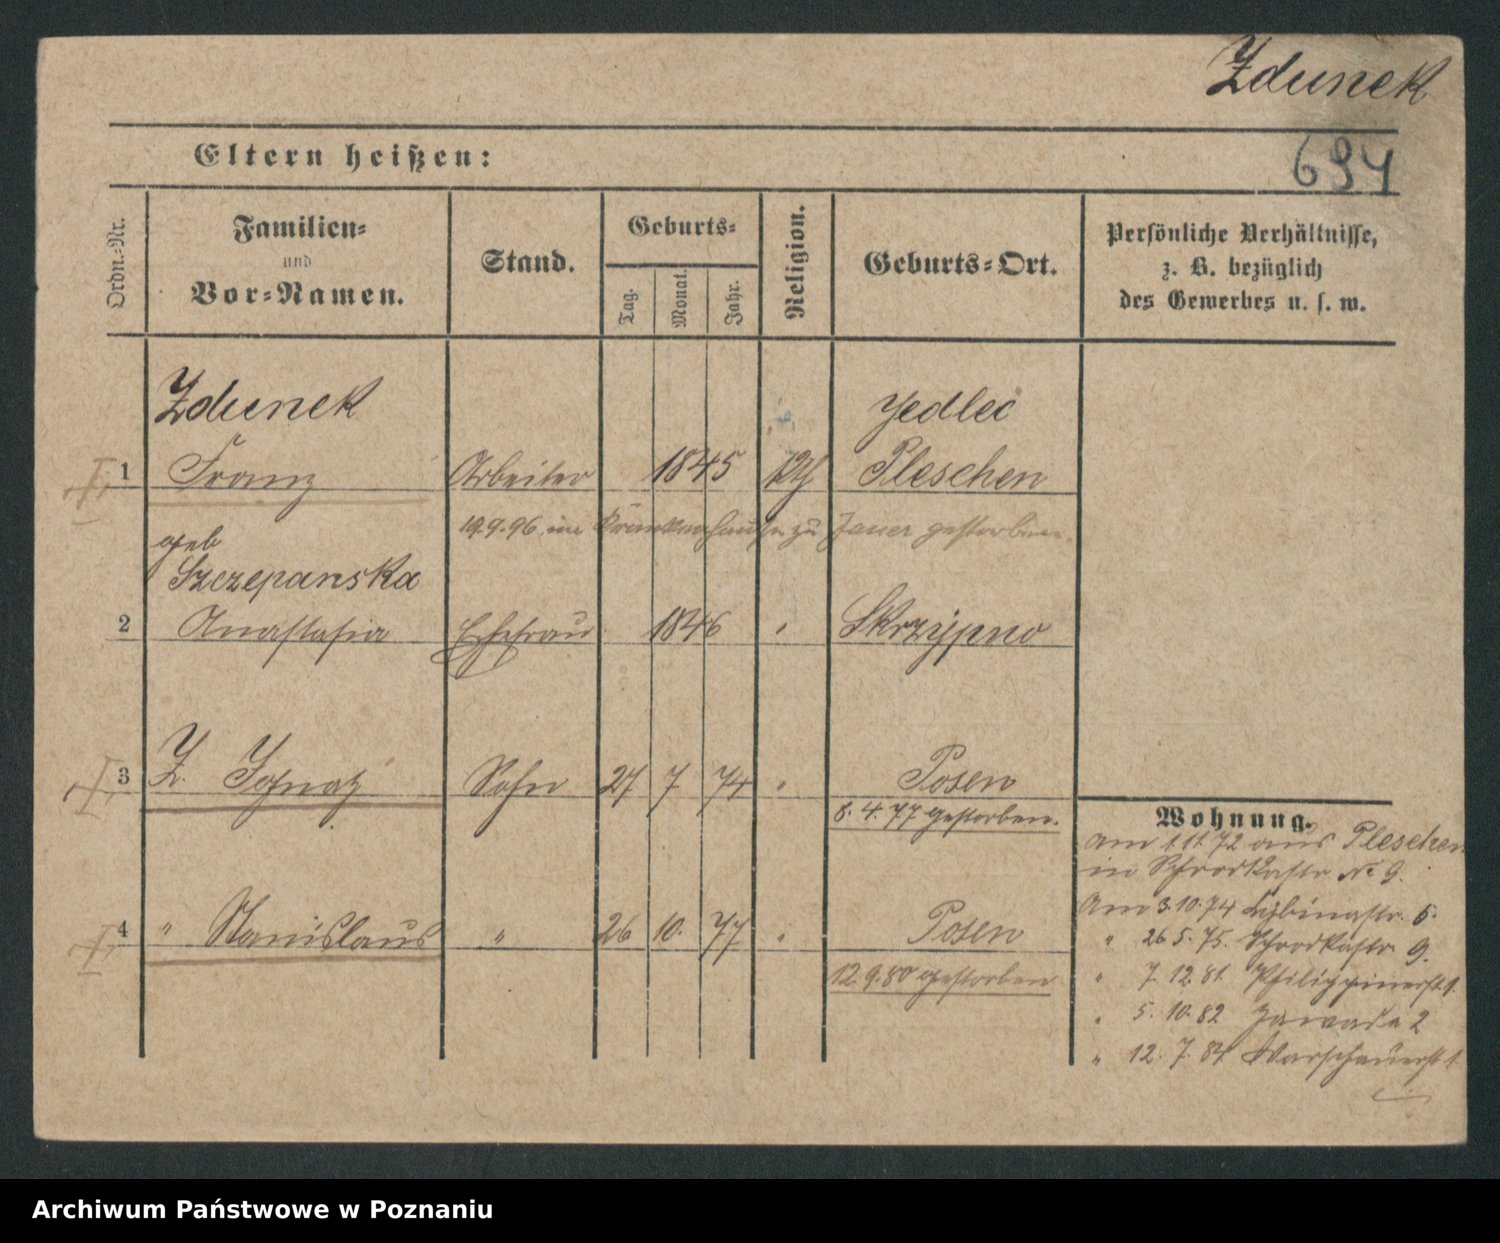 Zdunek
Eltern heißen:
694
Ordn.-Nr.
Familien-
und
Vor-Namen.
Stand.
Geburts-
Tag.
Monat.
Jahr.
Religion.
Geburts-Ort.
Persönliche Verhältnisse,
z. B. bezüglich
des Gewerbes u. s. w.
Zdunek
Jedlec
1 Franz Arbeiter 1845 kth Pleschen
19.9.96 im Krankenhause zu Jauer gestorben.
geb
Szczepanska
2 Anastasia Ehefrau 1846 " Skrzypno
3 Z. Ignaz Sohn 27 7 74 " Posen
8. 4. 77 gestorben.
4 " Stanislaus " 26 10. 77 " Posen
12.9.80 gestorben
Wohnung.
am 1.11.72 aus Pleschen
in Schrodkastr No 9.
Am 3.10.74 Lybinastr. 5.
" 26 5. 75. Schrodkastr 9.
" 7. 12. 81. Philippinerstr 1.
" 5. 10. 82 Zawade 2
" 12. 7. 84 Warschauerstr 1
Archiwum Państwowe w Poznaniu